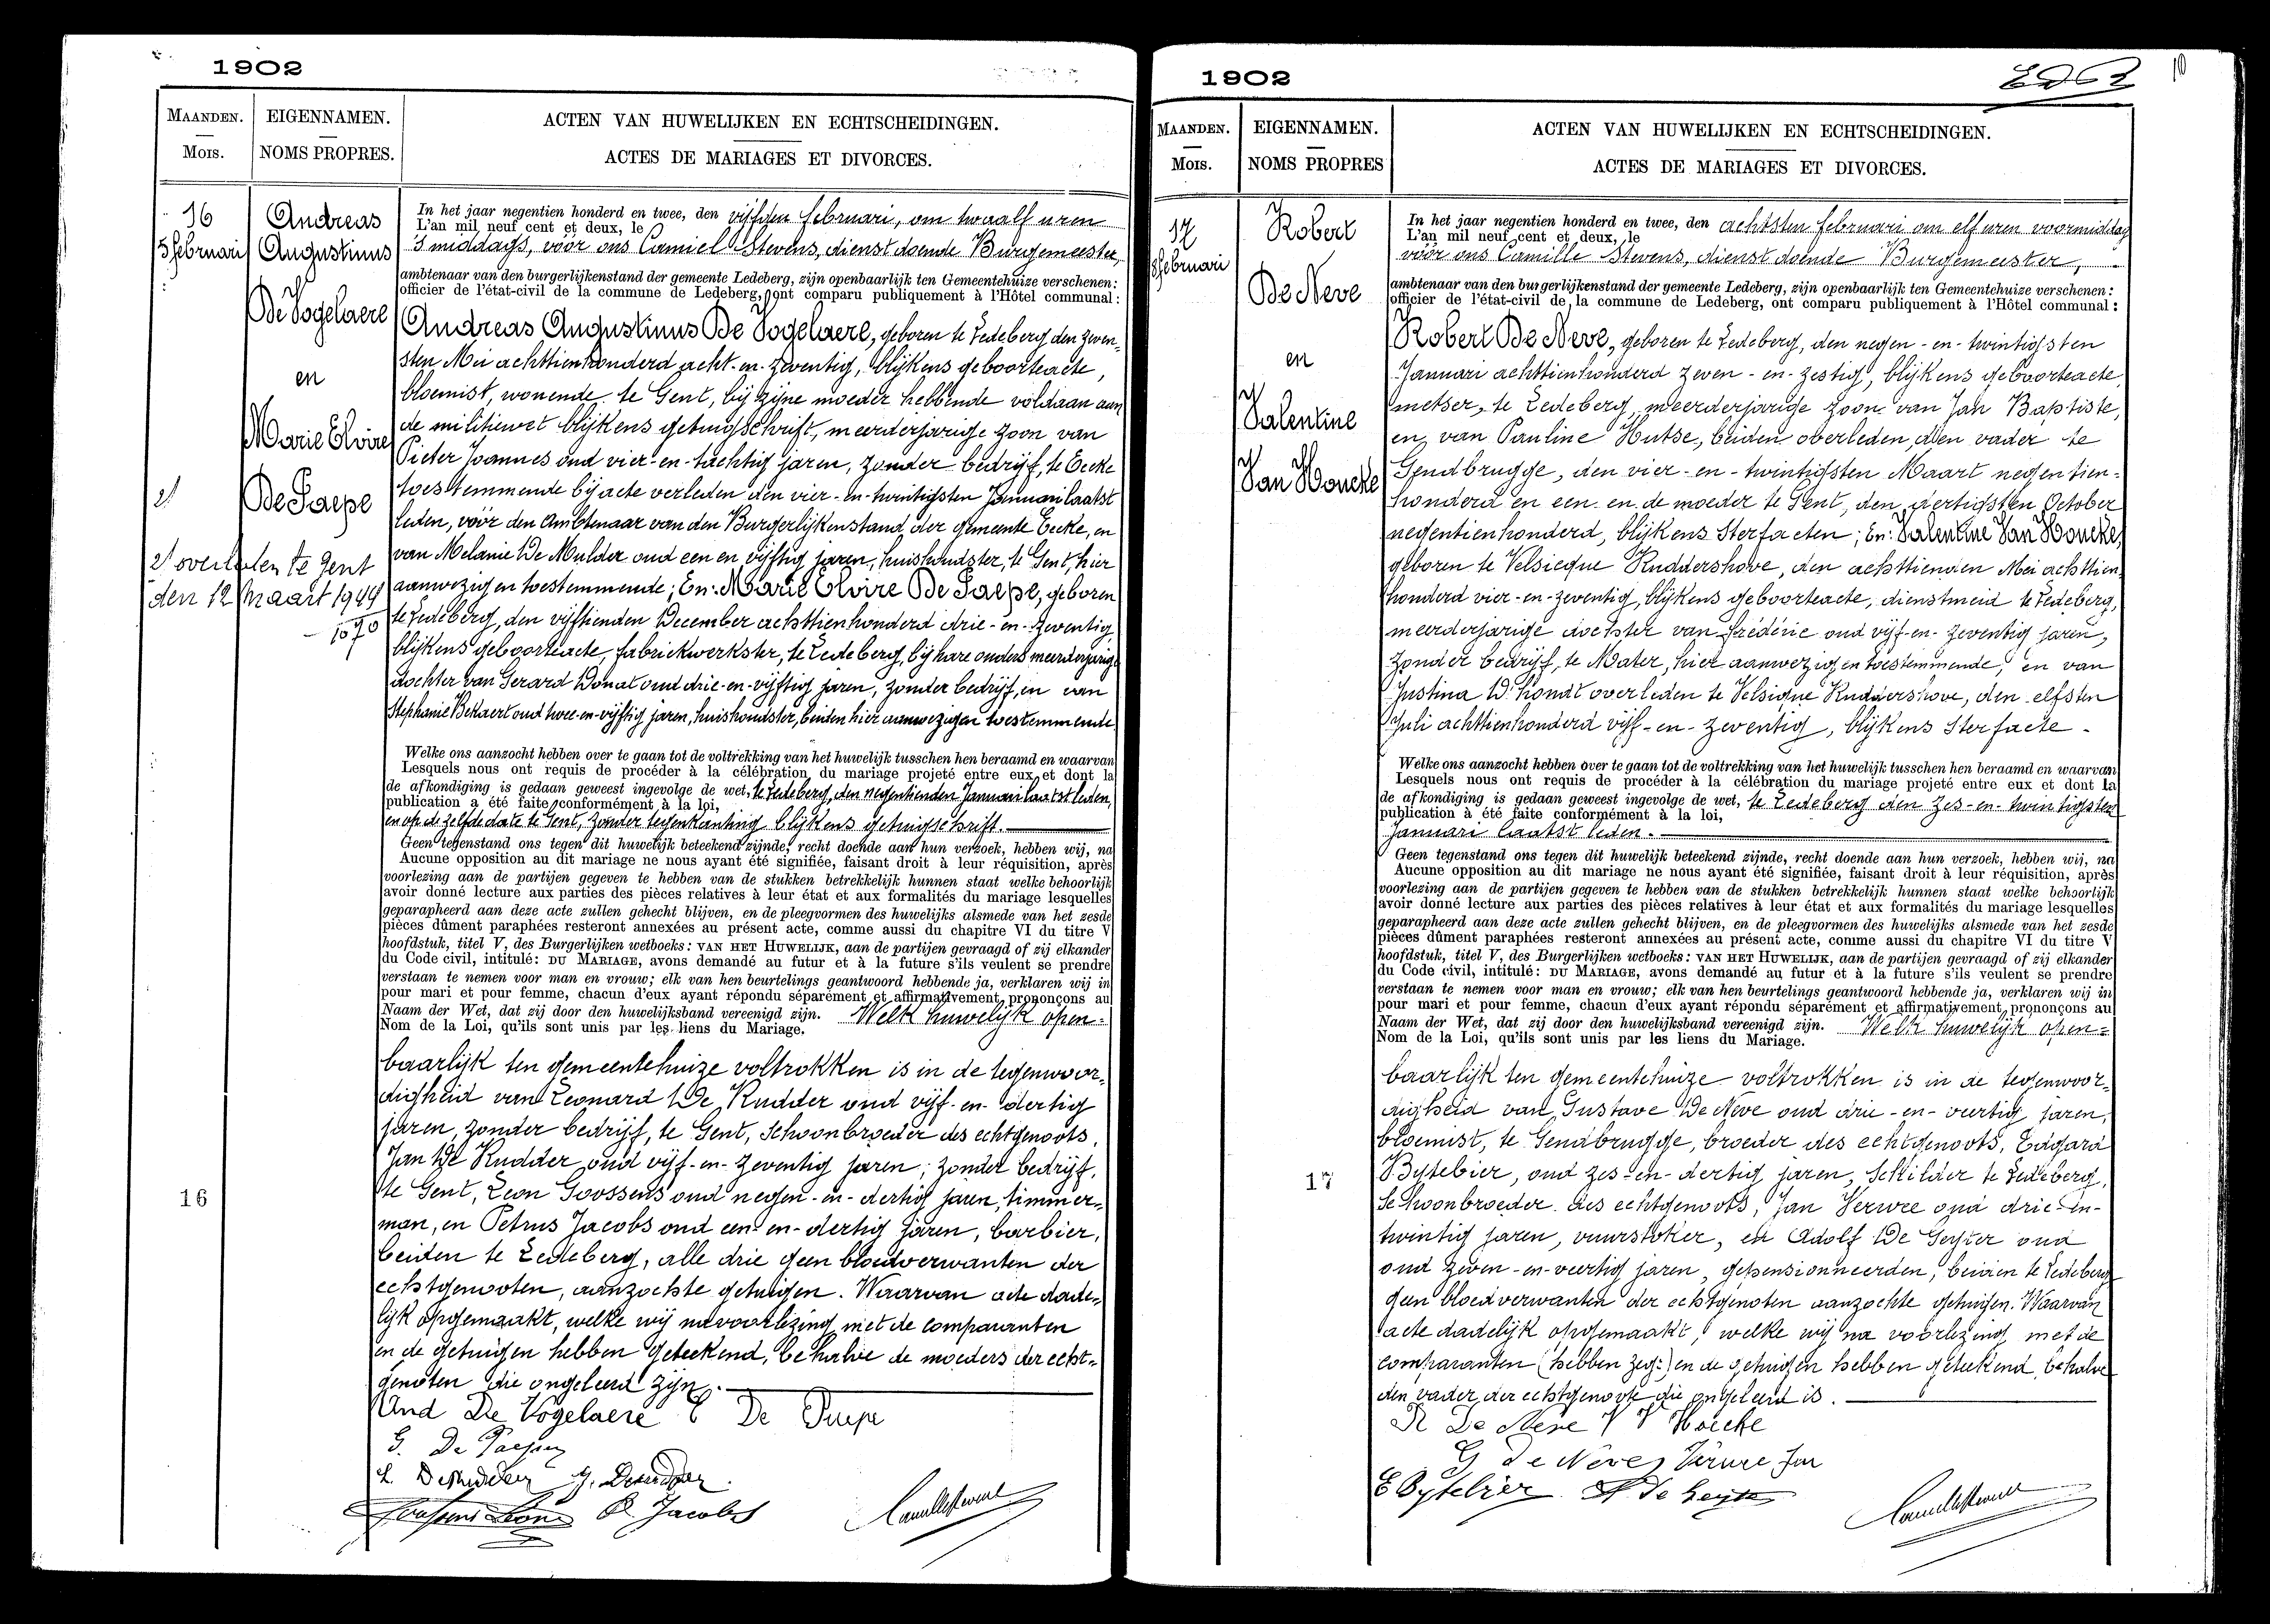 1902
MAANDEN.
Mois.
EIGENNAMEN.
NOMS PROPRES.
ACTEN VAN HUWELIJKEN EN ECHTSCHEIDINGEN.
ACTES DE MARIAGES ET DIVORCES.
16
5 februari
Andreas
Augustinus
De Vogelaere
en
Marie Elvire
De Paepe
overleden te Gent
den 12 Maart 1944
1070
16
In het jaar negentien honderd en twee, den vijfden februari, om twaalf uren
L'an mil neuf cent et deux, le
's middags, vóór ons Camiel Stevens, dienstdoende Burgemeester,
ambtenaar van den burgerlijkenstand der gemeente Ledeberg, zijn openbaarlijk ten Gemeentehuize verschenen:
officier de l'état-civil de la commune de Ledeberg, ont comparu publiquement à l'Hôtel communal:
Andreas Augustinus De Vogelaere, geboren te Ledeberg den zeven-
sten Mei achttienhonderd acht-en-zeventig, blijkens geboorteacte,
bloemist, wonende te Gent, bij zijne moeder hebbende voldaan aan
de militiewet blijkens getuigschrift, meerderjarige zoon van
Pieter Joannes oud vier-en-tachtig jaren, zonder bedrijf, te Eecke
toestemmende bij acte verleden den vier-en-twintigsten Januari laatst
leden, vóór den Ambtenaar van den Burgerlijkenstand der gemeente Eecke, en
van Melanie De Mulder oud een en vijftig jaren, huishoudster, te Gent, hier
aanwezig en toestemmende; En: Marie Elvire De Paepe, geboren
te Ledeberg, den vijftienden December achttienhonderd drie-en-zeventig,
blijkens geboorteacte, fabriekwerkster, te Ledeberg, bij hare ouders meerderjarige
dochter van Gerard Donat oud drie-en-vijftig jaren, zonder bedrijf, en van
Stephanie Bekaert oud twee-en-vijftig jaren, huishoudster, beiden hier aanwezig en toestemmende
Welke ons aanzocht hebben over te gaan tot de voltrekking van het huwelijk tusschen hen beraamd en waarvan
Lesquels nous ont requis de procéder à la célébration du mariage projeté entre eux et dont la
de afkondiging is gedaan geweest ingevolge de wet, te Ledeberg, den negentienden Januari laatst leden,
publication a été faite conformément à la loi,
en op de zelfde date te Gent, zonder tegenkanting blijkens getuigschrift.
Geen tegenstand ons tegen dit huwelijk beteekend zijnde, recht doende aan hun verzoek, hebben wij, na
Aucune opposition au dit mariage ne nous ayant été signifiée, faisant droit à leur réquisition, après
voorlezing aan de partijen gegeven te hebben van de stukken betrekkelijk hunnen staat welke behoorlijk
avoir donné lecture aux parties des pièces relatives à leur état et aux formalités du mariage lesquelles
geparapheerd aan deze acte zullen gehecht blijven, en de pleegvormen des huwelijks alsmede van het zesde
pièces dûment paraphées resteront annexées au présent acte, comme aussi du chapitre VI du titre V
hoofdstuk, titel V, des Burgerlijken wetboeks: VAN HET HUWELIJK, aan de partijen gevraagd of zij elkander
du Code civil, intitulé: DU MARIAGE, avons demandé au futur et à la future s'ils veulent se prendre
verstaan te nemen voor man en vrouw; elk van hen beurtelings geantwoord hebbende ja, verklaren wij in
pour mari et pour femme, chacun d'eux ayant répondu séparément et affirmativement prononçons au
Naam der Wet, dat zij door den huwelijksband vereenigd zijn. Welk huwelijk open-
Nom de la Loi, qu'ils sont unis par les liens du Mariage.
baarlijk ten gemeentehuize voltrokken is in de tegenwoor-
digheid van Leonard De Rudder oud vijf-en-dertig
jaren, zonder bedrijf, te Gent, Schoonbroeder des echtgenoots,
Jan De Rudder oud vijf-en-zeventig jaren, zonder bedrijf,
te Gent, Leon Goossens oud negen-en-dertig jaren, timmer-
man, en Petrus Jacobs oud een-en-dertig jaren, barbier,
beiden te Ledeberg, alle drie geen bloedverwanten der
echtgenooten, aanzochte getuigen. Waarvan acte dade-
lijk opgemaakt, welke wij na voorlezing met de comparanten
en de getuigen hebben geteekend, behalve de moeders der echt-
genoten die ongeleerd zijn.
And De Vogelaere E De Paepe
G. De Paepe
L. Derudder J. Derudder
Goossens Leon P. Jacobs Camille Stevens
1902
10
MAANDEN.
Mois.
EIGENNAMEN.
NOMS PROPRES
ACTEN VAN HUWELIJKEN EN ECHTSCHEIDINGEN.
ACTES DE MARIAGES ET DIVORCES.
17
8 februari
Robert
De Neve
en
Valentine
Van Houcke
17
In het jaar negentien honderd en twee, den achtsten februari om elf uren voormiddag
L'an mil neuf cent et deux, le
vóór ons Camille Stevens, dienstdoende Burgemeester,
ambtenaar van den burgerlijkenstand der gemeente Ledeberg, zijn openbaarlijk ten Gemeentehuize verschenen:
officier de l'état-civil de la commune de Ledeberg, ont comparu publiquement à l'Hôtel communal:
Robert De Neve, geboren te Ledeberg, den negen-en-twintigsten
Januari achttienhonderd zeven-en-zestig, blijkens geboorteacte,
metser, te Ledeberg, meerderjarige zoon van Jan Baptiste,
en van Pauline Hutse, beiden overleden, den vader te
Gendbrugge, den vier-en-twintigsten Maart negentien-
honderd en een en de moeder te Gent, den dertigsten October
negentienhonderd, blijkens Sterfacten; En: Valentine Van Houcke,
geboren te Velsicque Ruddershove, den achttienden Mei achttien
honderd vier-en-zeventig, blijkens geboorteacte, dienstmeid te Ledeberg,
meerderjarige dochter van Fréderic oud vijf-en-zeventig jaren,
zonder bedrijf, te Mater, hier aanwezig en toestemmende, en van
Justina D'hondt overleden te Velsique Ruddershove, den elfsten
Juli achttienhonderd vijf-en-zeventig, blijkens Sterfacte.
Welke ons aanzocht hebben over te gaan tot de voltrekking van het huwelijk tusschen hen beraamd en waarvan
Lesquels nous ont requis de procéder à la célébration du mariage projeté entre eux et dont la
de afkondiging is gedaan geweest ingevolge de wet, te Ledeberg den zes-en-twintigsten
publication a été faite conformément à la loi,
Januari laatst leden.
Geen tegenstand ons tegen dit huwelijk beteekend zijnde, recht doende aan hun verzoek, hebben wij, na
Aucune opposition au dit mariage ne nous ayant été signifiée, faisant droit à leur réquisition, après
voorlezing aan de partijen gegeven te hebben van de stukken betrekkelijk hunnen staat welke behoorlijk
avoir donné lecture aux parties des pièces relatives à leur état et aux formalités du mariage lesquelles
geparapheerd aan deze acte zullen gehecht blijven, en de pleegvormen des huwelijks alsmede van het zesde
pièces dûment paraphées resteront annexées au présent acte, comme aussi du chapitre VI du titre V
hoofdstuk, titel V, des Burgerlijken wetboeks: VAN HET HUWELIJK, aan de partijen gevraagd of zij elkander
du Code civil, intitulé: DU MARIAGE, avons demandé au futur et à la future s'ils veulent se prendre
verstaan te nemen voor man en vrouw; elk van hen beurtelings geantwoord hebbende ja, verklaren wij in
pour mari et pour femme, chacun d'eux ayant répondu séparément et affirmativement prononçons au
Naam der Wet, dat zij door den huwelijksband vereenigd zijn. Welk huwelijk open-
Nom de la Loi, qu'ils sont unis par les liens du Mariage.
baarlijk ten gemeentehuize voltrokken is in de tegenwoor-
digheid van Gustave De Neve oud drie-en-veertig jaren,
bloemist, te Gendbrugge, broeder des echtgenoots, Edgard
Bytebier, oud zes-en-dertig jaren, Schilder te Ledeberg,
Schoonbroeder des echtgenoots, Jan Verwee oud drie-en-
twintig jaren, vuurstoker, en Adolf De Geyter oud
oud zeven-en-veertig jaren, gepensionneerden, beiden te Ledeberg
geen bloedverwanten der echtgenoten aanzochte getuigen. Waarvan
acte dadelijk opgemaakt, welke wij na voorlezing met de
comparanten (hebben zeg:) en de getuigen hebben geteekend, behalve
den vader der echtgenoote die ongeleerd is.
R De Neve V V Hoecke
G De Neve
E Bytebier A De Geyter Camille Stevens